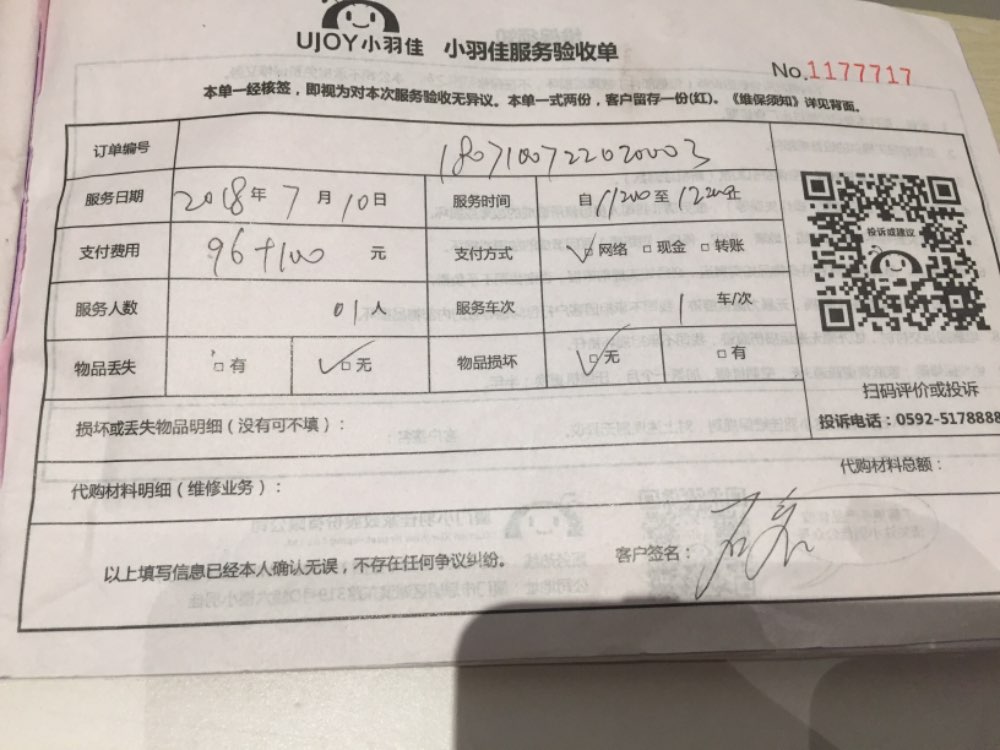 UJOY小羽佳 小羽佳服务验收单
No.1177717
本单一经核签，即视为对本次服务验收无异议。本单一式两份，客户留存一份(红)。《维保须知》详见背面。
订单编号 1807100722020003
服务日期 2018年 7月 10日 服务时间 自 11200至
支付费用 96+100 元 支付方式 □网络 □现金 □转账
服务人数 01人 服务车次 1 车/次
物品丢失 □有 □无 物品损坏 □无 □有
投诉或建议
扫码评价或投诉
投诉电话：0592-5178888
损坏或丢失物品明细（没有可不填）：
代购材料明细（维修业务）：
代购材料总额：
以上填写信息已经本人确认无误，不存在任何争议纠纷。
客户签名：